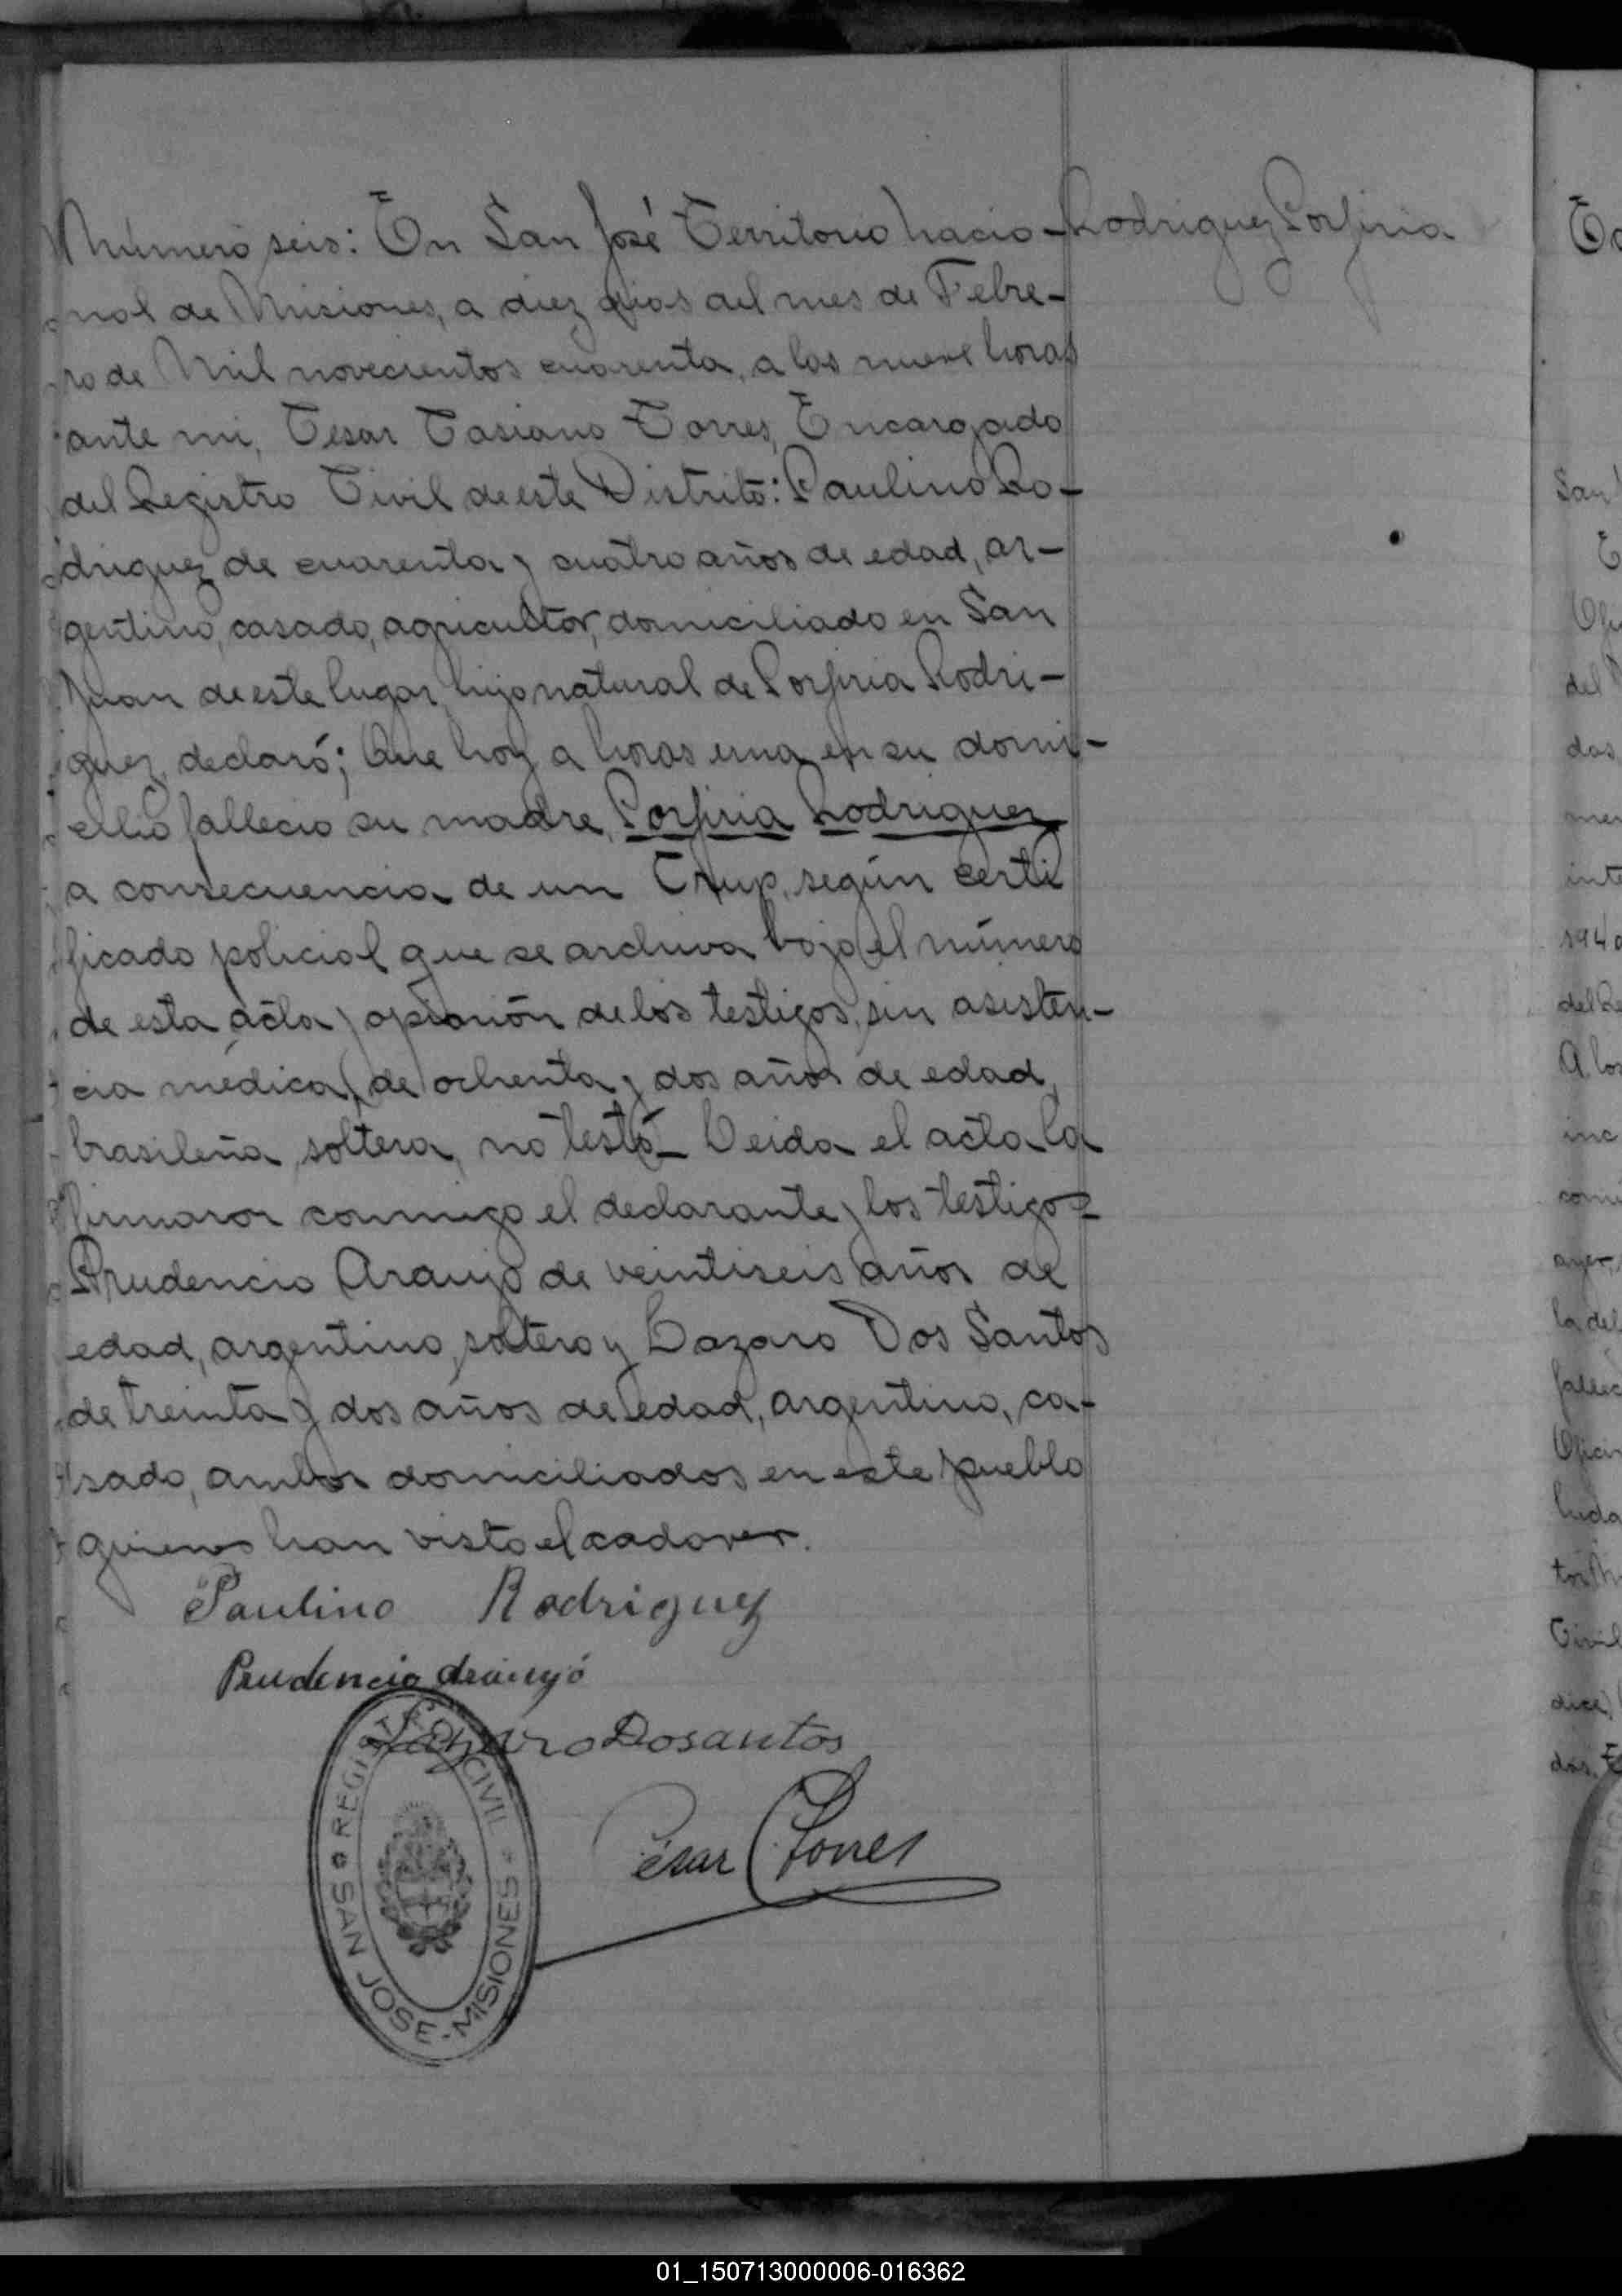 Número seis: En San José Territorio Nacio- Rodriguez Porfiria
nal de Misiones, a diez dias del mes de Febre-
ro de Mil novecientos cuarenta, a las nueve horas
ante mi, Cesar Casiano Torres, Encargado
del Registro Civil de este Distrito: Paulino Ro-
driguez de cuarenta y cuatro años de edad, ar-
gentino, casado, agricultor, domiciliado en San
Juan de este lugar, hijo natural de Porfiria Rodri-
guez, declaró; Que hoy a horas una en su domi-
cilio fallecio su madre, Porfiria Rodriguez
a consecuencia de un Crup, según certi
ficado policial que se archiva bajo el número
de esta acta y opinión de los testigos, sin asisten-
cia médica, de ochenta y dos años de edad,
brasileña, soltera, no testó- Leida el acta la
firmaron conmigo el declarante y los testigos
Prudencio Araujo de veintiseis años de
edad, argentino, soltero y Lazaro Dos Santos
de treinta y dos años de edad, argentino, ca-
sado, ambos domiciliados en este pueblo
quienes han visto el cadaver.
Paulino Rodriguez
Prudencio Araujó
Lazaro Dosantos
César C Torres
REGISTRO CIVIL
SAN JOSE-MISIONES
01_150713000006-016362